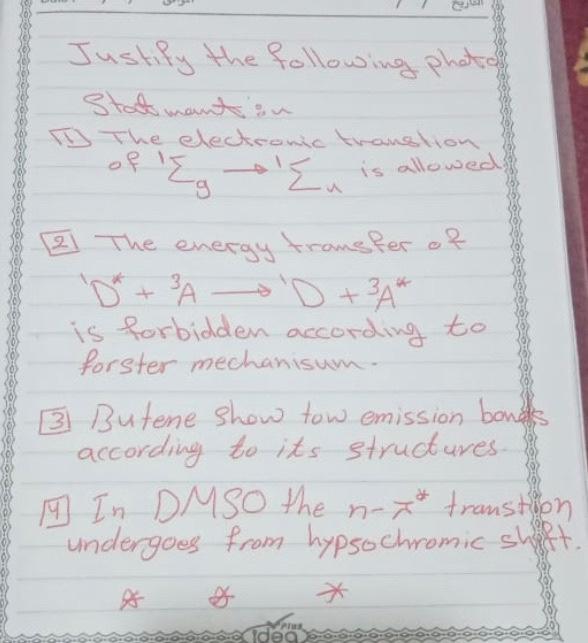 التاريخ
Justify the following photo
Statmants:
[1] The electronic transtion
of ¹Σg → ¹Σu is allowed
[2] The energy transfer of
¹D* + ³A → ¹D + ³A*
is forbidden according to
forster mechanisum.
[3] Butene show tow emission bands
according to its structures.
[4] In DMSO the n-π* transtion
undergoes from hypsochromic shift.
* * *
Plus
Idea